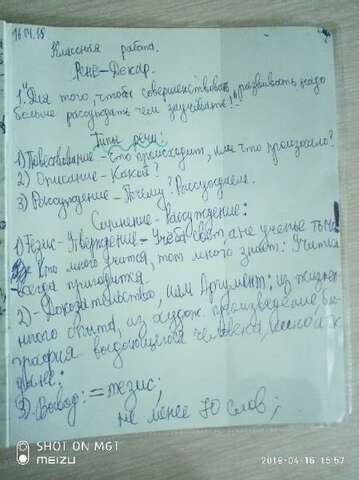 16.04.18
Классная работа.
Рене-Декар.
1."Для того, чтобы совершенствовать, развивать надо
больше рассуждать чем заучивать!"
Типы речи:
1) Повествование - Что происходит, или что произошло?
2) Описание - Какой?
3) Рассуждение - Почему? Рассуждаем.
Сочинение - Рассуждение:
1) Тезис - Утверждение - Ученье свет, а не ученье тьма
Кто много учится, тот много знает:
всегда пригодится.
2) - Доказательство, или Аргумент: из жизнен-
ного опыта, из худож. произведение би-
графия выдающегося человека,
3) Вывод: = тезис;
не менее 70 слов;
SHOT ON MGT
MEIZU
2018-04-16 15:57